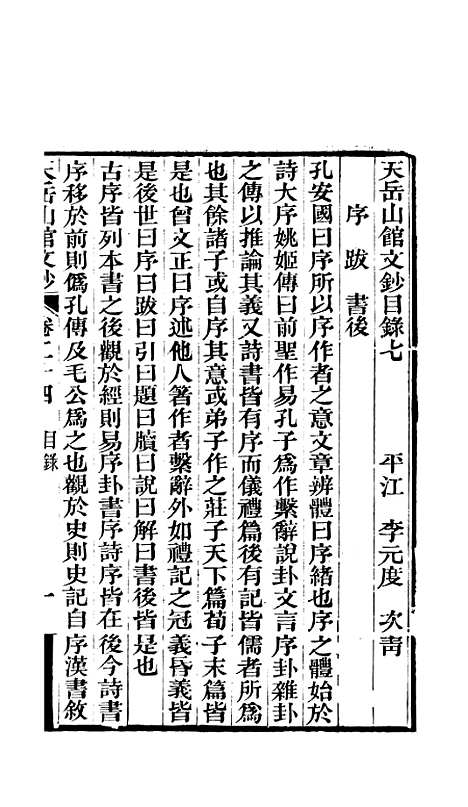 天岳山館文鈔目錄七 平江 李元度 次青
序 跋 書後
孔安國曰序所以序作者之意文章辨體曰序緒也序之體始於
詩大序姚姬傳曰前聖作易孔子爲作繫辭說卦文言序卦雜卦
之傳以推論其義又詩書皆有序而儀禮篇後有記皆儒者所爲
也其餘諸子或自序其意或弟子作之莊子天下篇荀子末篇皆
是也曾文正曰序述他人著作者繫辭外如禮記之冠義昏義皆
是後世曰序曰跋曰引曰題曰牘曰說曰解曰書後皆是也
古序皆列本書之後觀於經則易序卦書序詩序皆在後今詩書
序移於前則僞孔傳及毛公爲之也觀於史則史記自序漢書敘
天岳山館文鈔 卷二十四 目錄 一